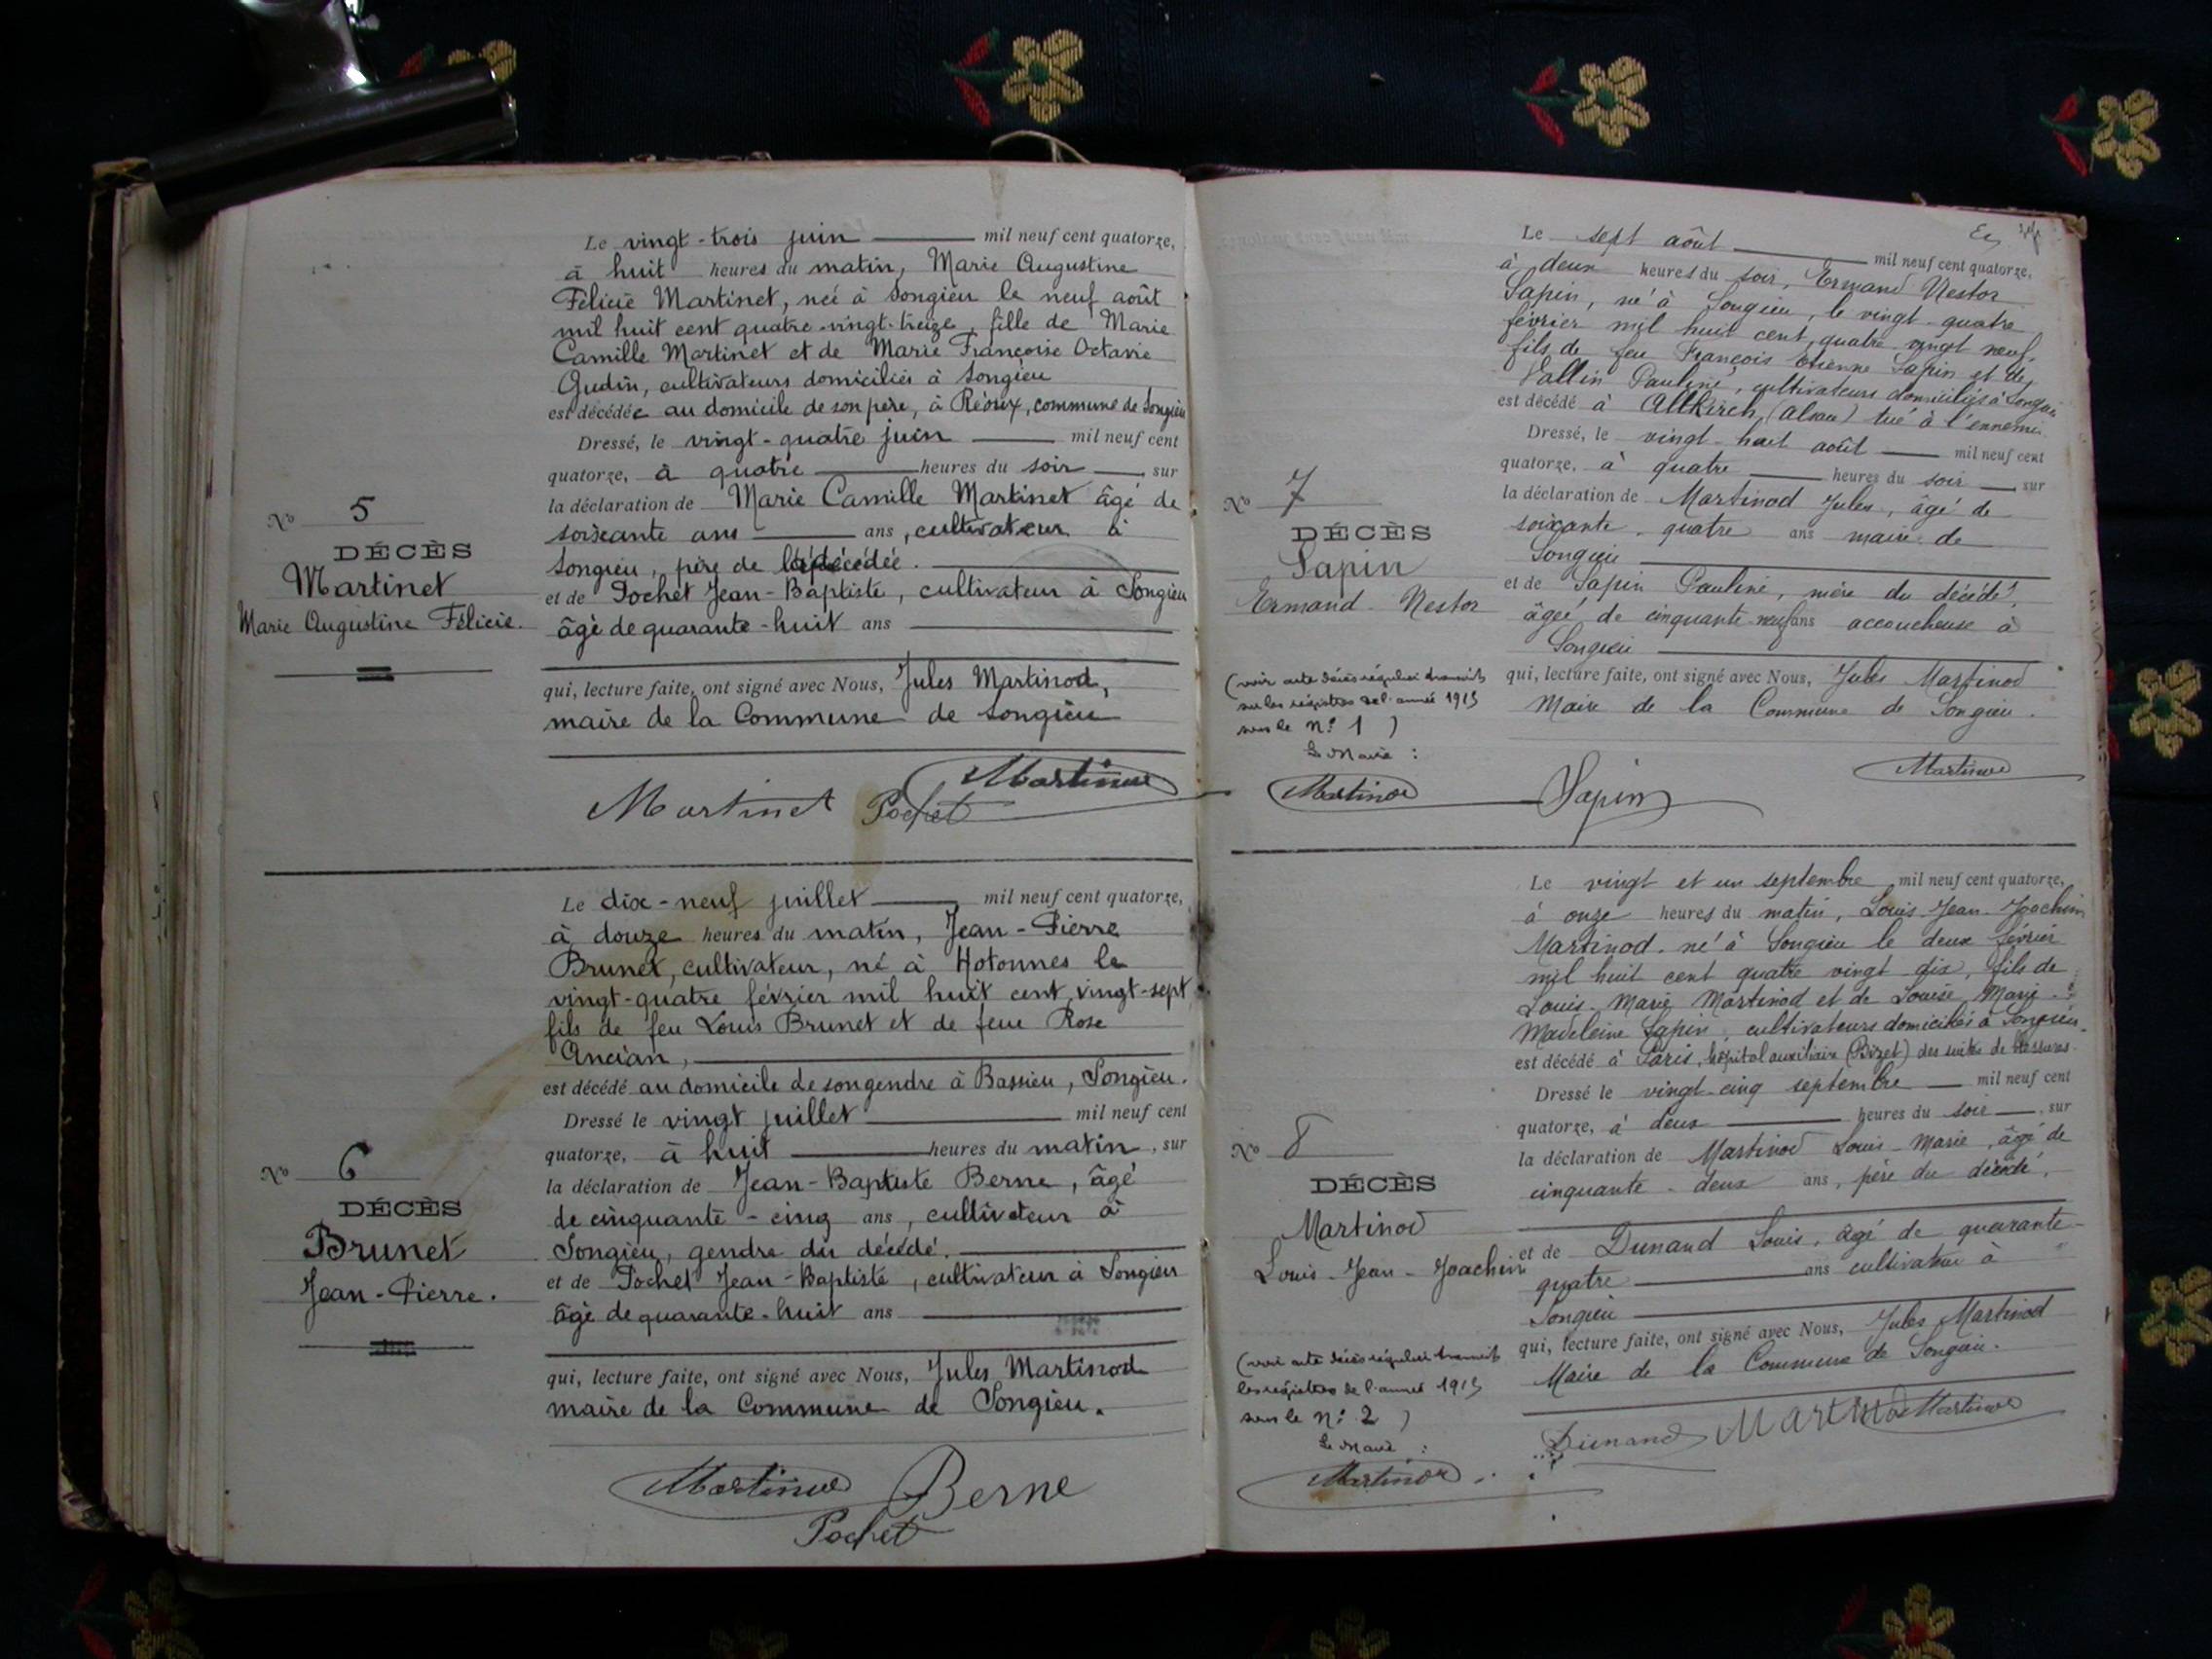 Le vingt-trois juin mil neuf cent quatorze,
à huit heures du matin, Marie Augustine
Félicie Martinet, née à Songieu le neuf août
mil huit cent quatre-vingt-treize, fille de Marie
Camille Martinet et de Marie Françoise Octavie
Gudin, cultivateurs domiciliés à Songieu
est décédée au domicile de son père, à Réoux, commune de Songieu
Dressé, le vingt-quatre juin mil neuf cent
quatorze, à quatre heures du soir, sur
la déclaration de Marie Camille Martinet âgé de
soixante ans ans, cultivateur à
Songieu, père de la décédée.
et de Pochet Jean-Baptiste, cultivateur à Songieu
âgé de quarante-huit ans
qui, lecture faite, ont signé avec Nous, Jules Martinod,
maire de la Commune de Songieu
Martinet Pochet Martinod
No 5
DÉCÈS
Martinet
Marie Augustine Félicie.
Le dix-neuf juillet mil neuf cent quatorze,
à douze heures du matin, Jean-Pierre
Brunet, cultivateur, né à Hotonnes le
vingt-quatre février mil huit cent vingt-sept
fils de feu Louis Brunet et de feue Rose
Ancian,
est décédé au domicile de son gendre à Bassieu, Songieu.
Dressé le vingt juillet mil neuf cent
quatorze, à huit heures du matin, sur
la déclaration de Jean-Baptiste Berne, âgé
de cinquante-cinq ans, cultivateur à
Songieu, gendre du décédé.
et de Pochet Jean-Baptiste, cultivateur à Songieu
âgé de quarante-huit ans
qui, lecture faite, ont signé avec Nous, Jules Martinod
maire de la Commune de Songieu.
Martinod Berne
Pochet
No 6
DÉCÈS
Brunet
Jean-Pierre.
Le sept août mil neuf cent quatorze,
à deux heures du soir, Ermand Nestor
Sapin, né à Songieu, le vingt-quatre
février mil huit cent quatre vingt neuf,
fils de feu François Etienne Sapin et de
Vallin Pauline, cultivateurs domiciliés à Songieu
est décédé à Altkirch, (Alsace) tué à l'ennemi
Dressé, le vingt-huit août mil neuf cent
quatorze, à quatre heures du soir, sur
la déclaration de Martinod Jules, âgé de
soixante-quatre ans maire de
Songieu
et de Sapin Pauline, mère du décédé,
âgée de cinquante-neuf ans accoucheuse à
Songieu
qui, lecture faite, ont signé avec Nous, Jules Martinod
Maire de la Commune de Songieu.
Sapin Martinod
No 7
DÉCÈS
Sapin
Ermand-Nestor
(voir acte décès régulier transcrit
sur les registres de l'année 1915
sous le No 1)
Le Maire :
Martinod
Le vingt et un septembre mil neuf cent quatorze,
à onze heures du matin, Louis-Jean-Joachim
Martinod, né à Songieu le deux février
mil huit cent quatre vingt dix, fils de
Louis-Marie Martinod et de Louise Marie
Madeleine Sapin, cultivateurs domiciliés à Songieu.
est décédé à Paris, hôpital auxiliaire (Bizet) des suites de blessures.
Dressé le vingt-cinq septembre mil neuf cent
quatorze, à deux heures du soir, sur
la déclaration de Martinod Louis-Marie, âgé de
cinquante-deux ans, père du décédé,
et de Dunand Louis, âgé de quarante-
quatre ans cultivateur à
Songieu
qui, lecture faite, ont signé avec Nous, Jules Martinod
Maire de la Commune de Songieu.
Dunand Martinod Martinod
No 8
DÉCÈS
Martinod
Louis-Jean-Joachim
(voir acte décès régulier transcrit
les registres de l'année 1915
sous le No 2)
Le Maire :
Martinod